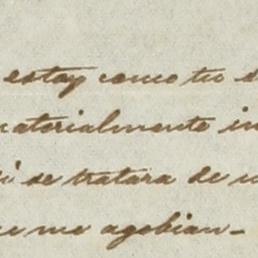 estoy como tu s
materialmente in
si se tratara de u
ue me agobian_